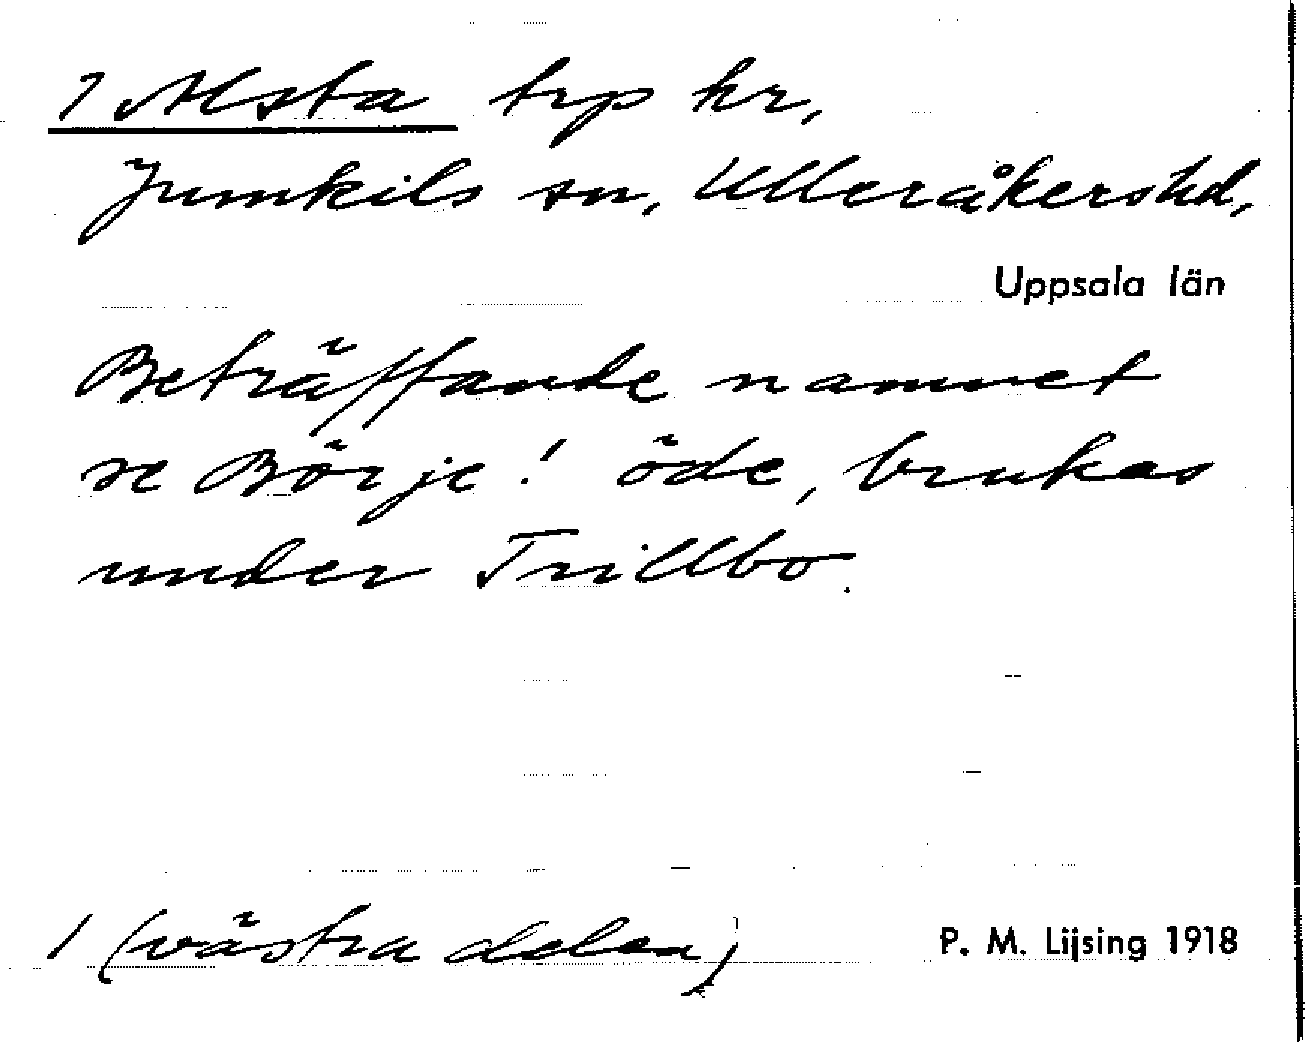 1 Alsta trp hr,
Jumkils sn, Ulleråkers hd,
Uppsala län
Beträffande namnet
se Börje! öde, brukas
under Trillbo.
1 (västra delen)
P. M. Lijsing 1918